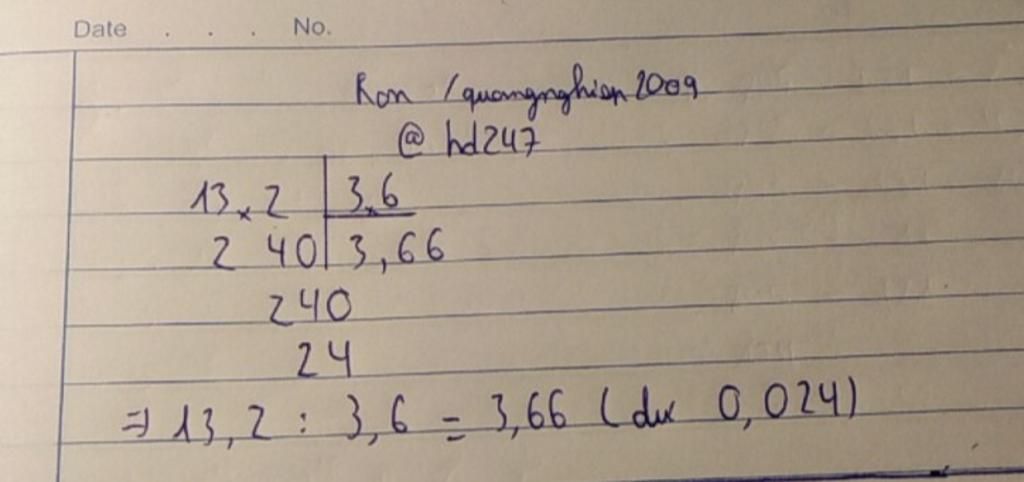 Date . . . No.
Ron / quangnghien2009
@ hd247
13,2 | 3,6
2 40 | 3,66
240
24
⇒ 13,2 : 3,6 = 3,66 (dư 0,024)